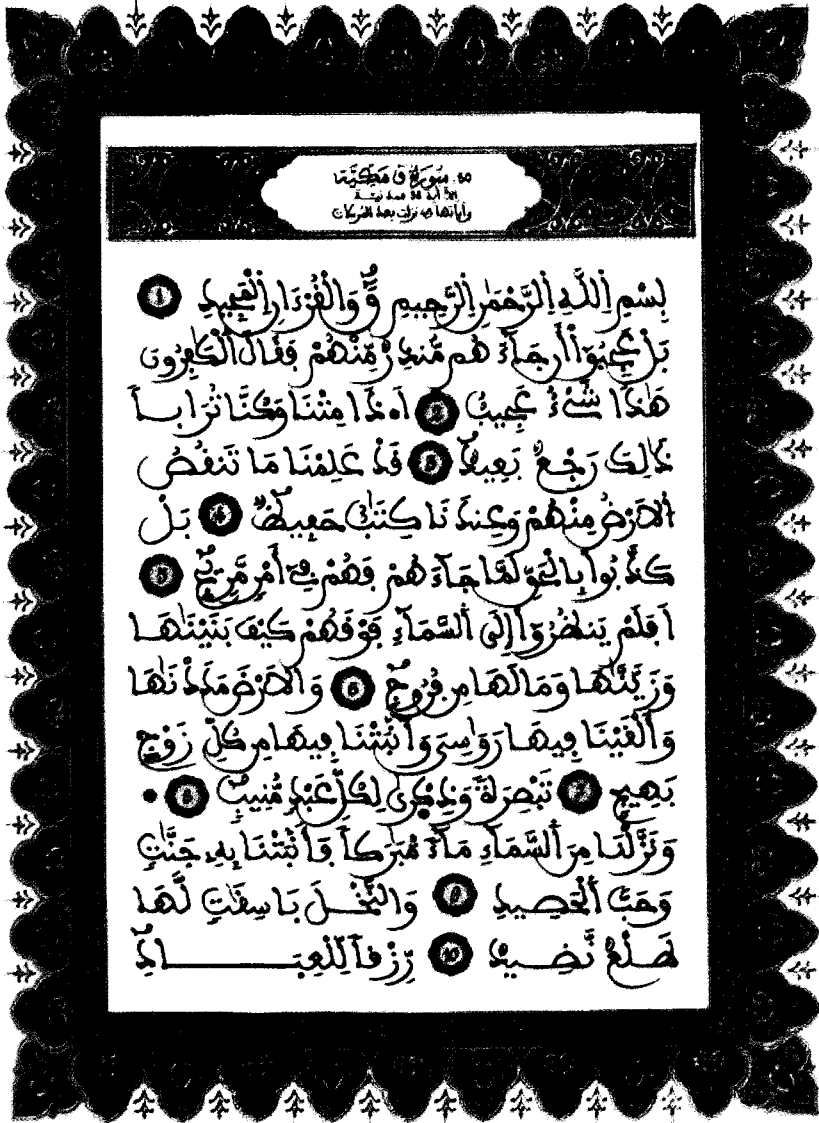 50. سُورَةُ ق مَكِّيَّة
إلا آية 38 فمدنية
وآياتها 45 نزلت بعد المرسلات
بِسْمِ اِ۬للَّهِ اِ۬لرَّحْمَٰنِ اِ۬لرَّحِيمِ قَٓۖ وَالْقُرْءَانِ اِ۬لْمَجِيدِ 1
بَلْ عَجِبُوٓاْ أَن جَآءَهُم مُّنذِرٞ مِّنْهُمْ فَقَالَ اَ۬لْكَٰفِرُونَ
هَٰذَا شَےْءٌ عَجِيبٌ 2 اَ۟ذَا مِتْنَا وَكُنَّا تُرَاباٗ
ذَٰلِكَ رَجْعُۢ بَعِيدٞۖ 3 قَدْ عَلِمْنَا مَا تَنقُصُ
اُ۬لَارْضُ مِنْهُمْ وَعِندَنَا كِتَٰبٌ حَفِيظٞۖ 4 بَلْ
كَذَّبُواْ بِالْحَقِّ لَمَّا جَآءَهُمْ فَهُمْ فِےٓ أَمْرٖ مَّرِيجٍۖ 5
اَفَلَمْ يَنظُرُوٓاْ إِلَي اَ۬لسَّمَآءِ فَوْقَهُمْ كَيْفَ بَنَيْنَٰهَا
وَزَيَّنَّٰهَا وَمَا لَهَا مِن فُرُوجٖۖ 6 وَالَارْضَ مَدَدْنَٰهَا
وَأَلْقَيْنَا فِيهَا رَوَٰسِيَ وَأَنۢبَتْنَا فِيهَا مِن كُلِّ زَوْجِۢ
بَهِيجٖ 7 تَبْصِرَةٗ وَذِكْر۪يٰ لِكُلِّ عَبْدٖ مُّنِيبٖۖ 8
وَنَزَّلْنَا مِنَ اَ۬لسَّمَآءِ مَآءٗ مُّبَٰرَكاٗ فَأَنۢبَتْنَا بِهِۦ جَنَّٰتٖ
وَحَبَّ اَ۬لْحَصِيدِ 9 وَالنَّخْلَ بَاسِقَٰتٖ لَّهَا
طَلْعٞ نَّضِيدٞ 10 رِّزْقاٗ لِّلْعِبَادِۖ